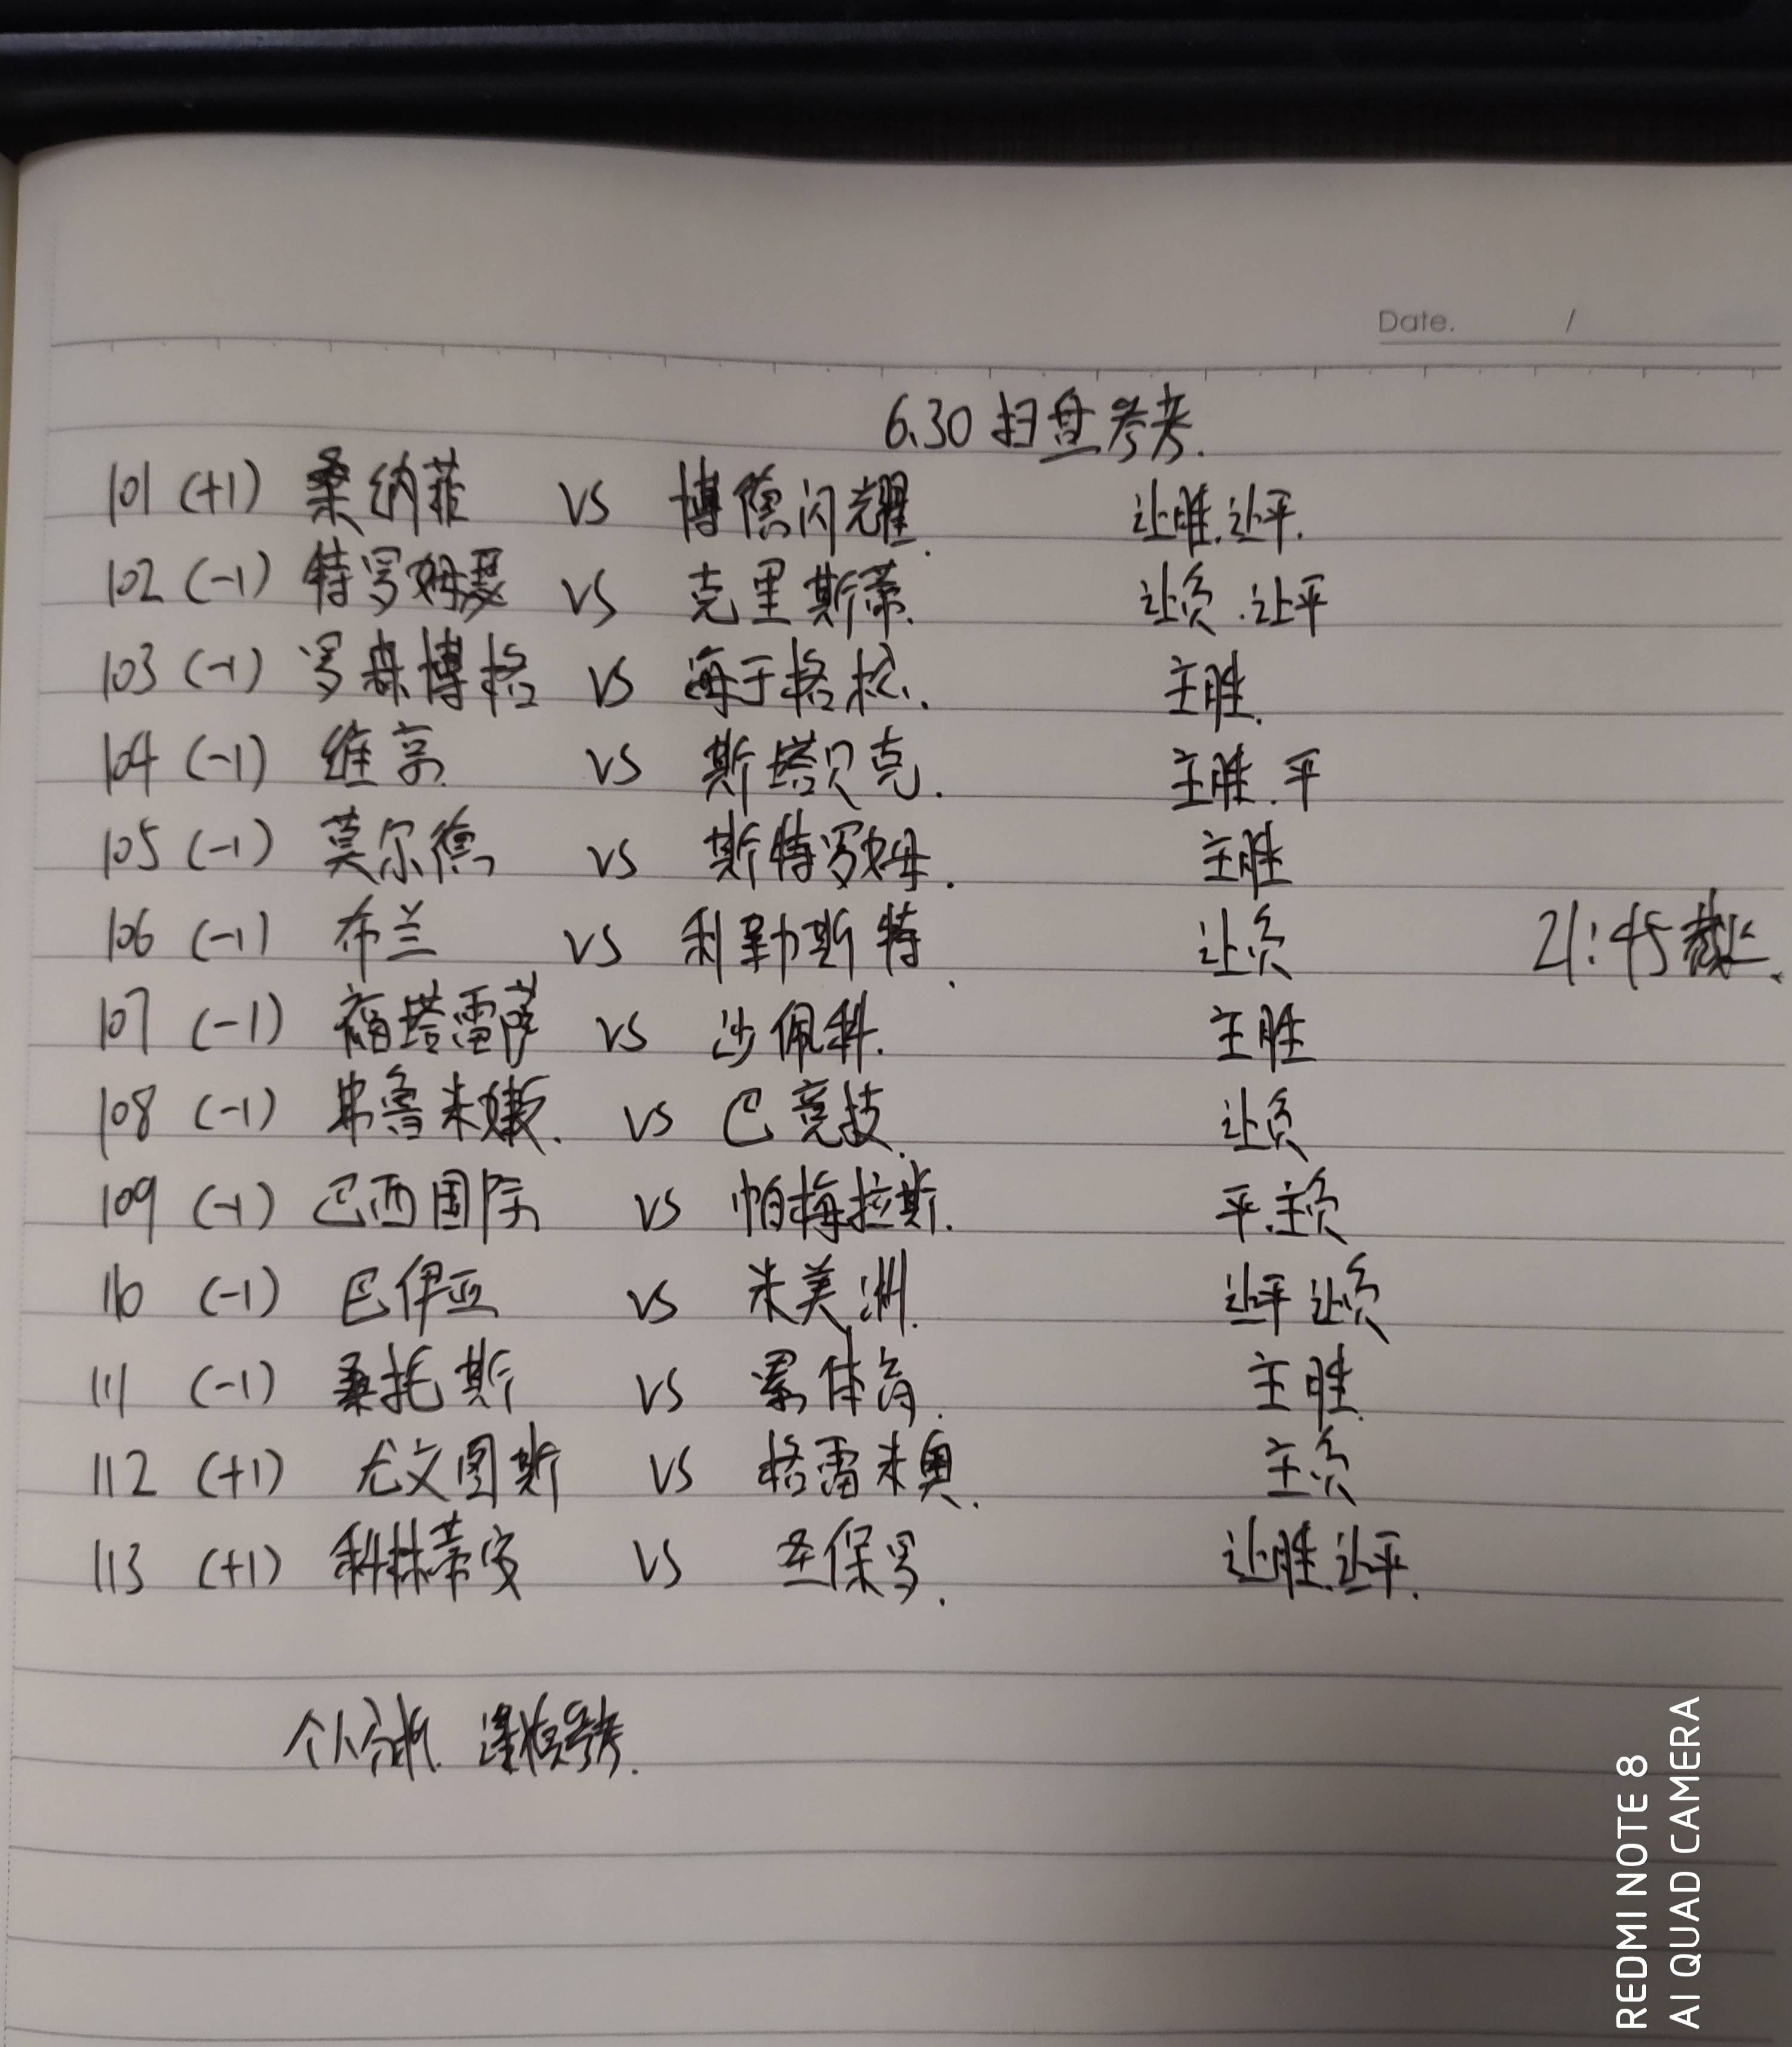 Date. /
6.30 扫盘参考.
101 (+1) 桑纳菲 VS 博德闪耀. 让胜.让平.
102 (-1) 特罗姆瑟 VS 克里斯蒂. 让负.让平
103 (-1) 罗森博格 VS 海于格松. 主胜.
104 (-1) 维京 VS 斯塔贝克. 主胜.平
105 (-1) 莫尔德 VS 斯特罗姆. 主胜
106 (-1) 布兰 VS 利勒斯特. 让负 21:45截止.
107 (-1) 福塔雷萨 VS 沙佩科. 主胜
108 (-1) 弗鲁米嫩. VS 巴竞技. 让负
109 (-1) 巴西国际 VS 帕梅拉斯. 平.主负
110 (-1) 巴伊亚 VS 米美洲. 让平 让负
111 (-1) 桑托斯 VS 累体育. 主胜.
112 (+1) 尤文图斯 VS 格雷米奥. 主负
113 (+1) 科林蒂安 VS 圣保罗. 让胜.让平.
个人分析. 谨慎参考.
REDMI NOTE 8
AI QUAD CAMERA